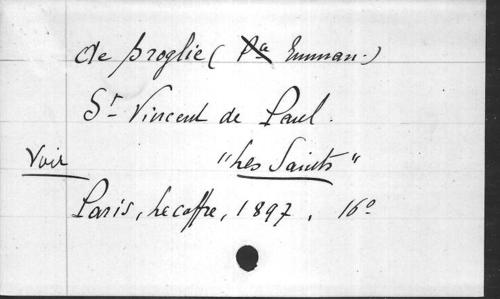 de Broglie ( Emman.)
St Vincent de Paul.
Voir "Les Saints"
Paris, Lecoffre, 1897. 16°